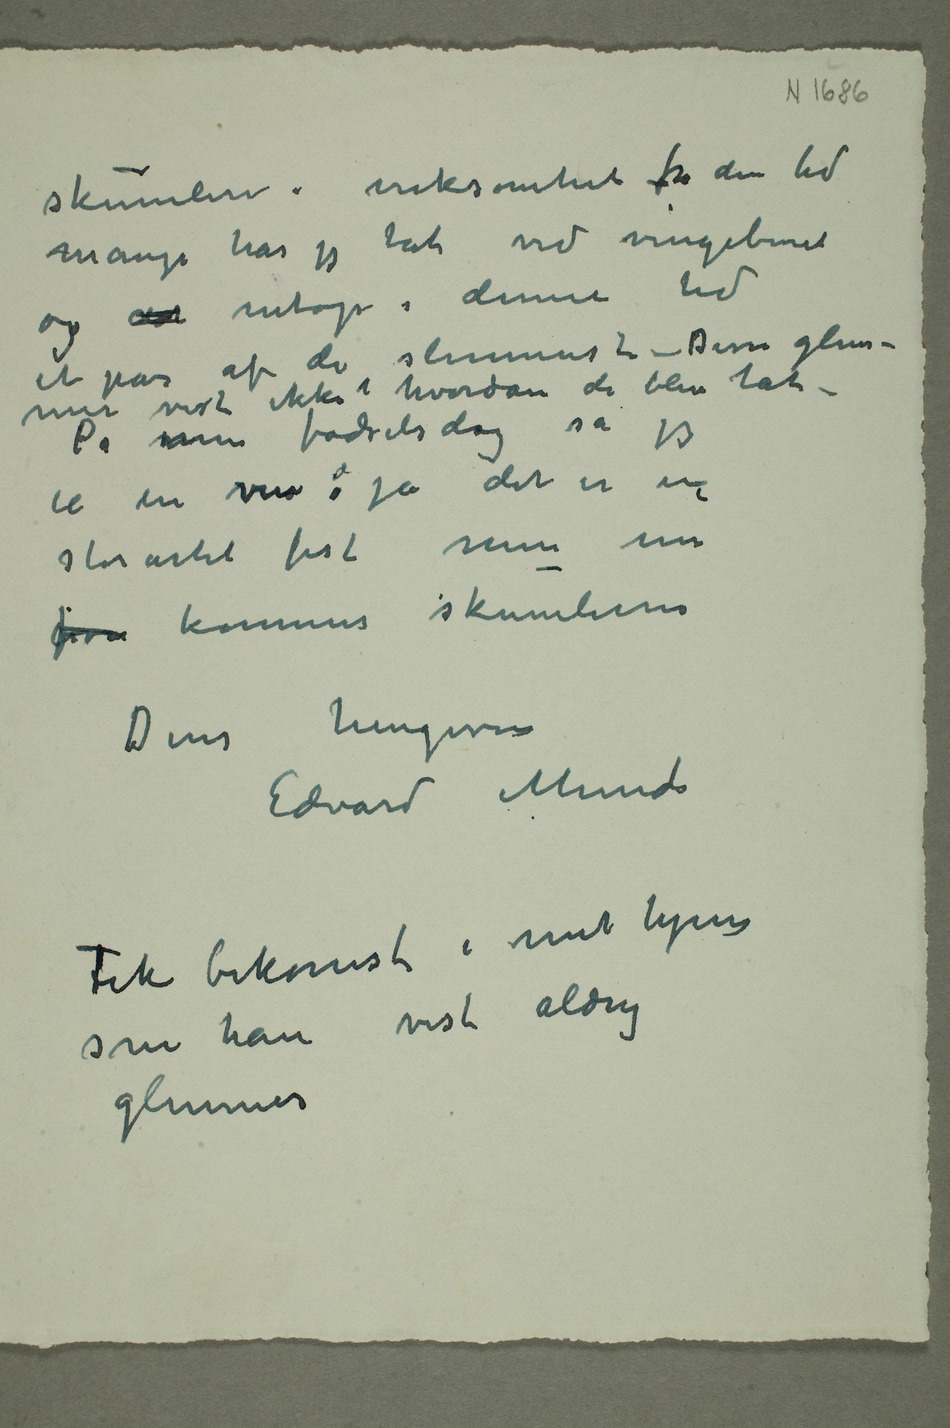 N 1686
skumlere i virksomhet fra den tid
mange har jg tat ved vingebenet
og netop i denne tid
et par af de slemmeste – Disse glem-
mer vist ikke hvordan de blev tat –
På min fødselsdag sa jg
til en ven å ja det er en
storartet fest men nu
kommer skumlerne
Deres hengivne
Edvard Munch
Fik bekomst i mit hjem
som han vist aldrig
glemmer